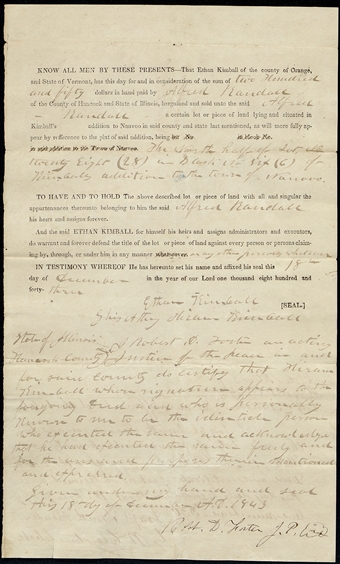 KNOW ALL MEN BY THESE PRESENTS—That Ethan Kimball of the county of Orange,
and State of Vermont, has this day for and in consideration of the sum of two Hundred
and fifty dollars in hand paid by Alfred Randall
of the County of Hancock and State of Illinois, bargained and sold unto the said Alfred
Randall a certain lot or piece of land lying and situated in
Kimball's addition to Nauvoo in said county and state last mentioned, as will more fully ap-
pear by reference to the plat of said addition, being
The South half of Lot
twenty Eight (28) in Block Six (6) of
Kimballs addition to the town of Nauvoo.
TO HAVE AND TO HOLD The above described lot or piece of land with all and singular the
appurtenances thereunto belonging to him the said Alfred Randall
his heirs and assigns forever.
And the said ETHAN KIMBALL for himself his heirs and assigns administrators and executors,
do warrant and forever defend the title of the lot or piece of land against every person or persons claim-
ing by, through, or under him in any manner
IN TESTIMONY WHEREOF He has hereunto set his name and affixed his seal this 18th
day of December in the year of our Lord one thousand eight hundred and
forty- three
Ethan Kimball [SEAL.]
By his Atty Hiram Kimball
State of Illinois
Hancock County I Robert D. Foster an acting
Justice of the peace in and
for said County do certify that Hiram
Kimball whose signature appears to the
foregoing Deed and who is personally
known to me to be the identical person
who executed the same and acknowledge
that he had executed the same freely and
for the uses and purposes therein mentioned
and expressed
Given under my hand and seal
this 18 day of December A.D. 1843
Robt. D. Foster J.P.